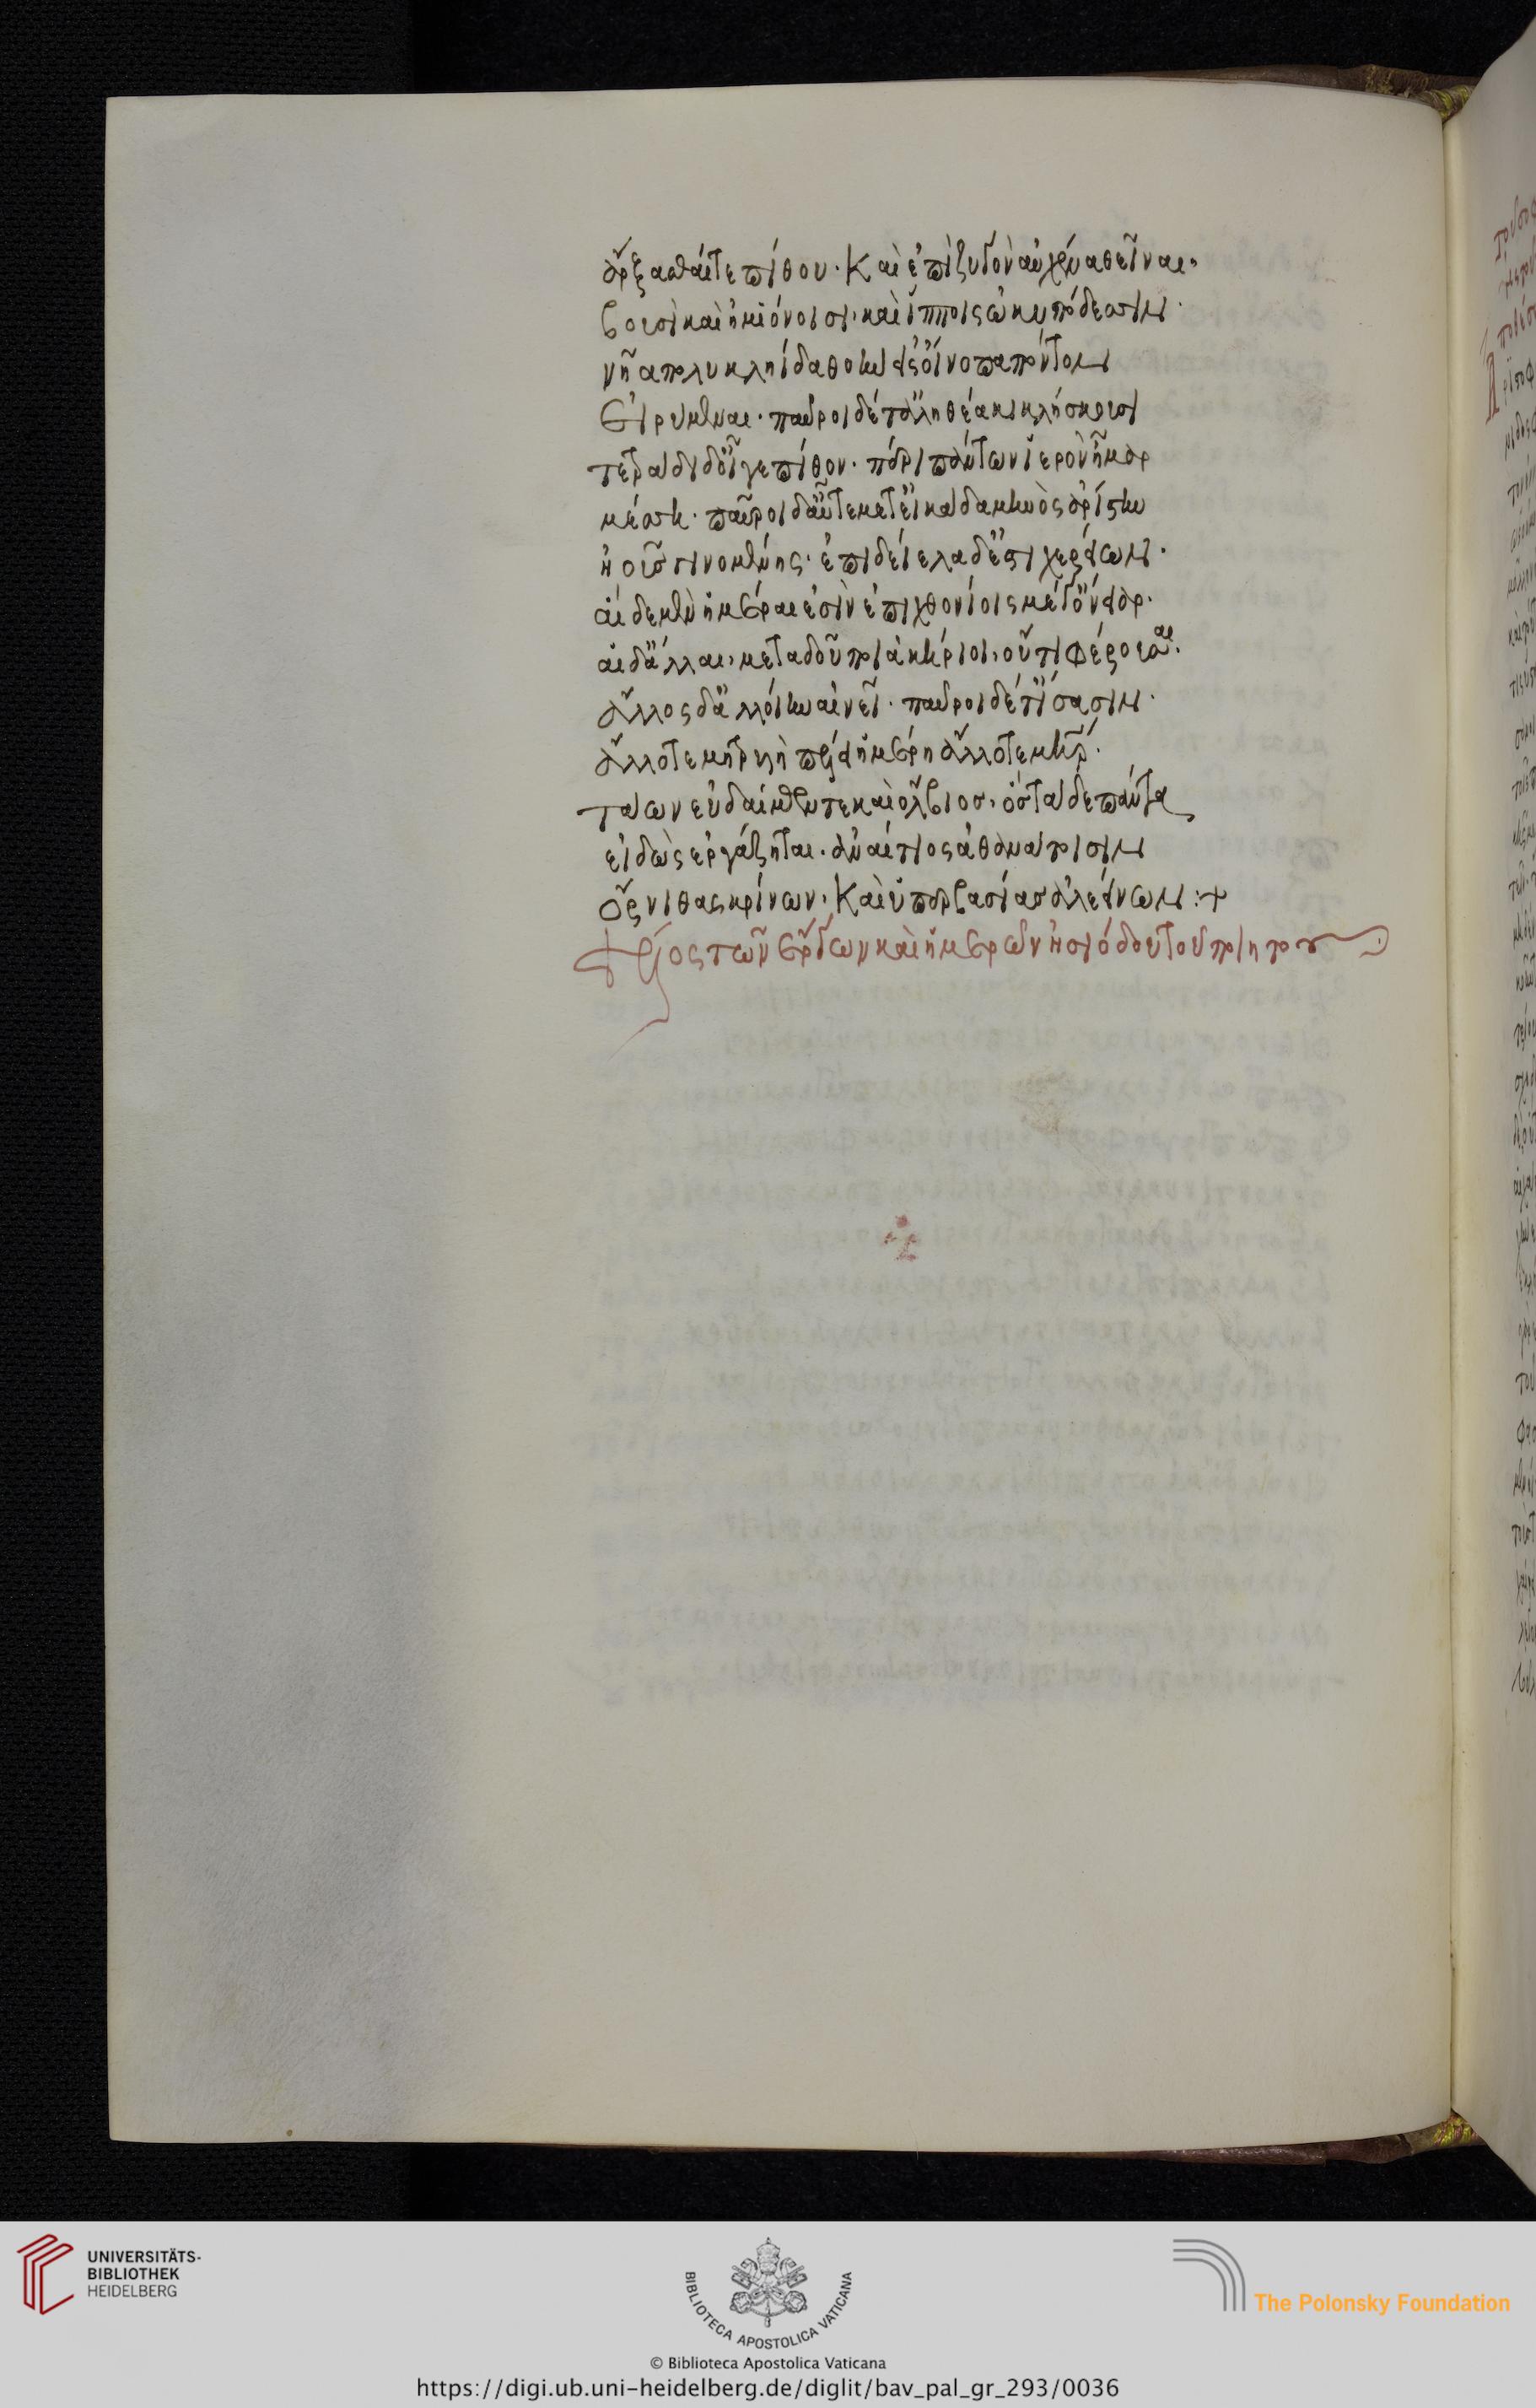 ἄρξασθαί τε πίθου· καὶ ἐπὶ ζυγὸν αὐχένα θεῖναι,
βουσὶ καὶ ἡμιόνοισι, καὶ ἵπποις ὠκυπόδεσσιν·
νῆα πολυκλήϊδα θοὴν εἰς οἴνοπα πόντον
εἰρύμεναι· παῦροι δέ τ' ἀληθέα κικλήσκουσι
τετράδι δ' οἶγε πίθον· πέρι πάντων ἱερὸν ἦμαρ
μέσση· παῦροι δ' αὖτε μετ' εἰκάδα μηνὸς ἀρίστην
ἠοῦς γινομένης· ἐπιδείελα δ' ἐστὶ χερείων·
αἵδε μὲν ἡμέραι εἰσὶν ἐπιχθονίοις μέγ' ὄνειαρ·
αἱ δ' ἄλλαι, μετάδουποι ἀκήριοι, οὔτι φέρουσαι·
ἄλλος δ' ἀλλοίην αἰνεῖ· παῦροι δέ τ' ἴσασιν·
ἄλλοτε μητρυιὴ πέλει ἡμέρη ἄλλοτε μήτηρ·
τάων εὐδαίμων τε καὶ ὄλβιος, ὃς τάδε πάντα
εἰδὼς ἐργάζηται· ἀναίτιος ἀθανάτοισιν
ὄρνιθας κρίνων, καὶ ὑπερβασίας ἀλεείνων :+
τέλος τῶν ἔργων καὶ ἡμερῶν ἡσιόδου τοῦ ποιητοῦ
UNIVERSITÄTS-
BIBLIOTHEK
HEIDELBERG
BIBLIOTECA APOSTOLICA VATICANA
The Polonsky Foundation
© Biblioteca Apostolica Vaticana
https://digi.ub.uni-heidelberg.de/diglit/bav_pal_gr_293/0036